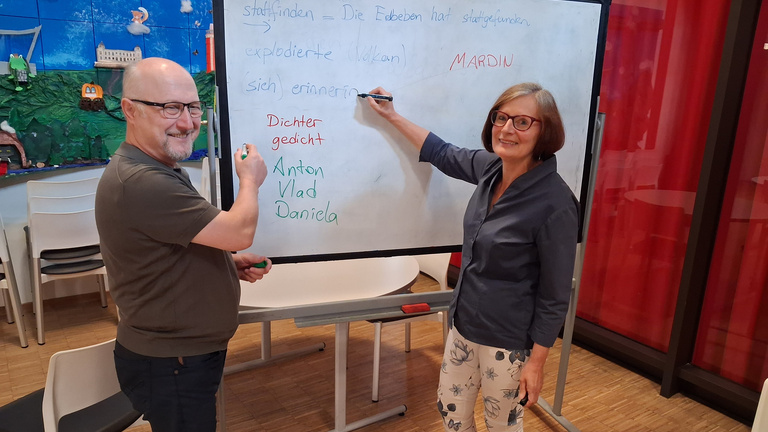 stattfinden = Die Erbeben hat stattgefunden
explodierte (Vulkan)
MARDIN
(sich) erinnerin
Dichter
gedicht
Anton
Vlad
Daniela